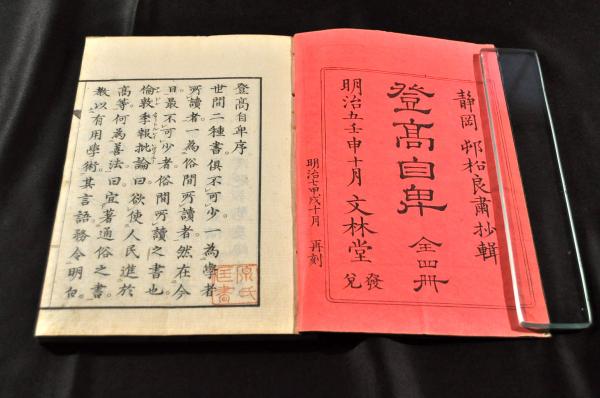 静岡 邨松良肅抄輯
登髙自卑 全四冊
明治五壬申十月 文林堂 發兌
明治七甲戌十月 再刻
登髙自卑序
世間二種書俱不可少。一為學者
所讀者。一為俗間所讀者。然在今
日最不可少者。俗間所讀之書也。
倫敦季報批論曰。欲使人民進於
高等。何為善法。曰。宜著通俗之書。
教以有用學術。其言語務令明白。